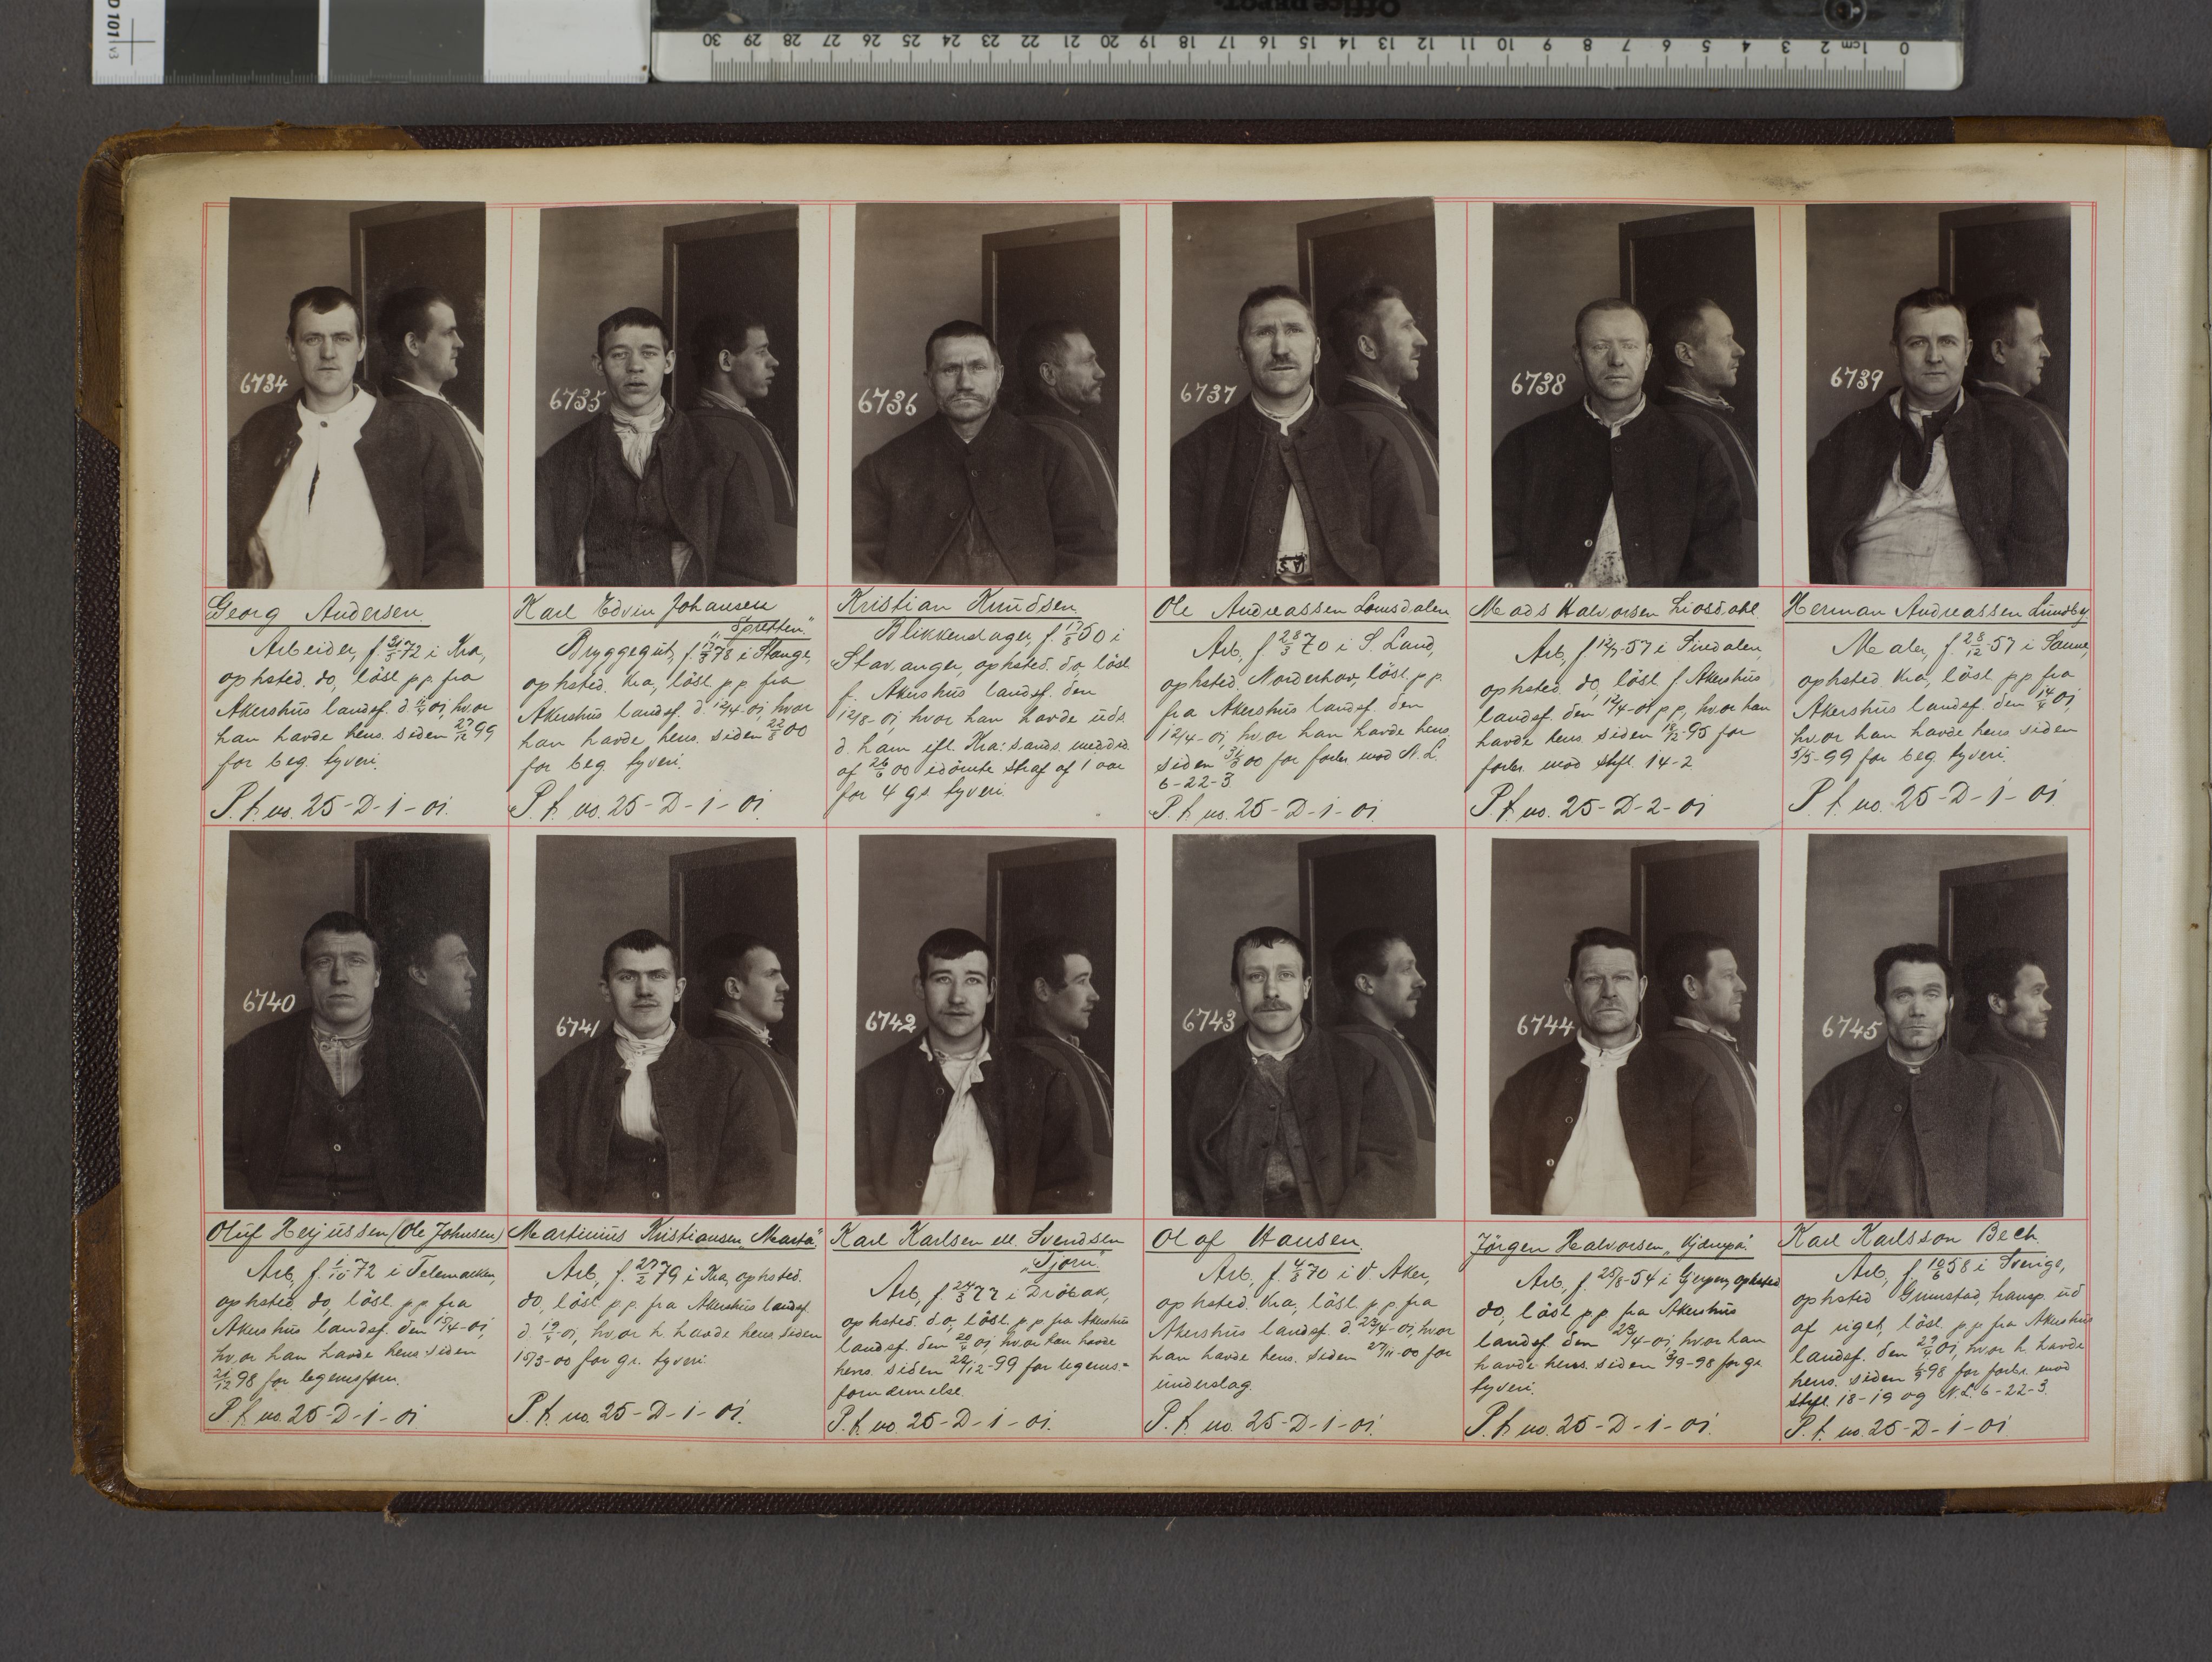 D 101 v3
Office DEPOT
30 29 28 27 26 25 24 23 22 21 20 19 18 17 16 15 14 13 12 11 10 9 8 7 6 5 4 3 2 1cm 0
6734
6735
6736
6737
6738
6739
Georg Andersen
Arbeider, f. 31/5 72 i Kra,
ophsted. do, lösl. p.p. fra
Akershus landsf. d. 11/4 01, hvor
han havde hens. siden 27/12 99
for beg. tyveri.
P. f. no. 25-D-1-01.
Karl Edvin Johansen
"Spretten"
Bryggegut, f. 78 i Stange,
ophsted. Kra, lösl. p.p. fra
Akershus landsf. d. 12/4-01, hvor
han havde hens. siden 22/8 00
for beg. tyveri.
P. f. no. 25-D-1-01.
Kristian Knudsen
Blikkenslager, f. 17/8 50 i
Stavanger, ophsted. do, lösl.
f. Akershus landsf. den
12/8-01 hvor han havde uds.
d. ham ifl. Kra: sands. meddr.
af 26/6 00 idömte straf af 1 aar
for 4 gs. tyveri.
Ole Andreassen Lomsdalen
Arb, f. 28/3 70 i S. Land,
ophsted. Norderhov, lösl. p.p.
fra Akershus landsf. den
12/4-01, hvor han havde hens.
siden 00 for forbr. mod N. L.
6-22-3
P. f. no. 25-D-1-01.
Mads Halvorsen Liosdahl
Arb, f. 12/7-57 i Siredalen,
ophsted. do, lösl. f. Akershus
landsf. den 12/4-01 p.p., hvor han
havde hens. siden 18/2-95 for
forbr. mod stfl. 14-2
P. f. no. 25-D-2-01
Herman Andreassen Lundby
Maler, f. 28/12 57 i Sanne,
ophsted. Kra, lösl. p.p. fra
Akershus landsf. den 14/4 01,
hvor han havde hens. siden
5/5-99 for beg. tyveri.
P. f. no. 25-D-1-01.
6740
6741
6742
6743
6744
6745
Oluf Herjussen (Ole Johnsen)
Arb, f. 1/10 72 i Telemarken,
ophsted. do, lösl. p.p. fra
Akershus landsf. den 15/4-01,
hvor han havde hens. siden
21/12 98 for legemsforn.
P. f. no. 25-D-1-01
Martinius Kristiansen "Marta"
Arb, f. 27/2 79 i Kra, ophsted.
do, lösl. p.p. fra Akershus landsf.
d. 19/4-01, hvor h. havde hens. siden
15/3-00 for gr. tyveri.
P. f. no. 25-D-1-01.
Karl Karlsen ell. Svendsen
"Tjorn"
Arb, f. 24/3 77 i Dröbak,
ophsted. do, lösl. p.p. fra Akershus
landsf. den 20/4 01, hvor han havde
hens. siden 22/12-99 for legems-
fornærmelse.
P. f. no. 25-D-1-01.
Olaf Hansen
Arb, f. 4/8 70 i V. Aker,
ophsted. Kra, lösl. p.p. fra
Akershus landsf. d. 23/4-01, hvor
han havde hens. siden 27/11-00 for
underslag.
P. f. no. 25-D-1-01.
Jörgen Halvorsen
Arb, f. 25/8-54 i Gjerpen, ophsted
do, lösl. p.p. fra Akershus
landsf. den 23/4-01, hvor han
havde hens. siden 13/9-98 for gr.
tyveri.
P. f. no. 25-D-1-01.
Karl Karlsson Bech
Arb, f. 10/6 58 i Sverige,
ophsted Grimstad, transp. ud
af riget, lösl. p.p. fra Akershus
landsf. den 29/4 01, hvor h. havde
hens. siden 98 for forbr. mod
stfl. 18-19 og N.L. 6-22-3.
P. f. no. 25-D-1-01